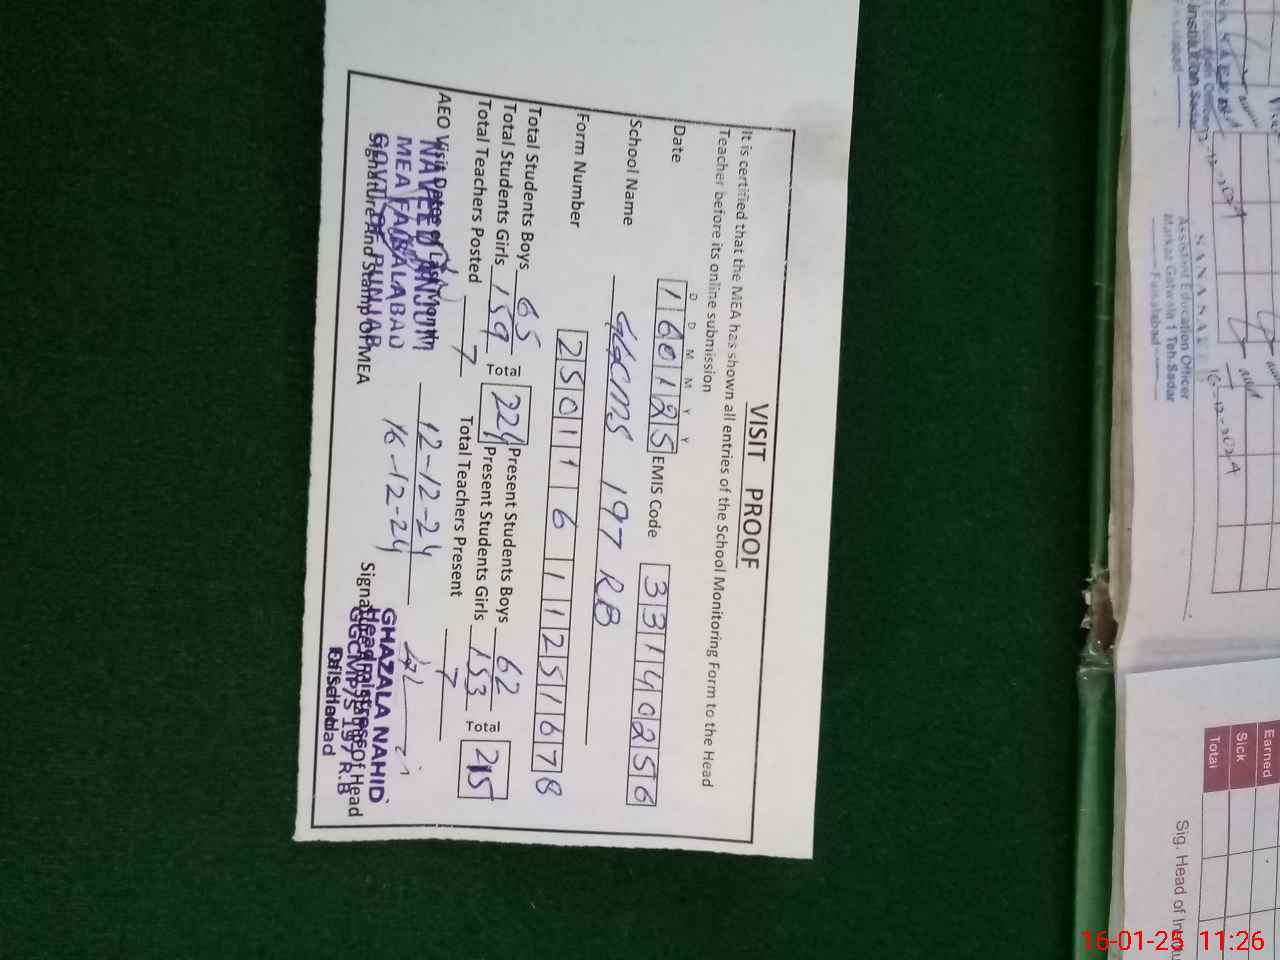 VISIT PROOF
It is certified that the MEA has shown all entries of the School Monitoring Form to the Head
Teacher before its online submission
D D M M Y Y
Date 160125 EMIS Code 33140256
School Name GGCMS 197 RB
Form Number 2501161125 1678
Total Students Boys 65 Total 224 Present Students Boys 62 Total 215
Total Students Girls 159 Present Students Girls 153
Total Teachers Posted 7 Total Teachers Present 7
AEO Visit Dates of Last Month 12-12-24
16-12-24
NAVEED ANJUM
MEA FAISALABAD
GOVT. OF PUNJAB
Signature And Stamp Of MEA
GHAZALA NAHID
Headmistress
GGCMP/S 197 R.B
Faisalabad
Of School
12-12-2024
SANA SAEED
Assistant Education Officer
Markaz Gatwala 1 Teh. Sadar
Faisalabad
16-12-2024
Earned
Sick
Total
Sig. Head of
16-01-25 11:26